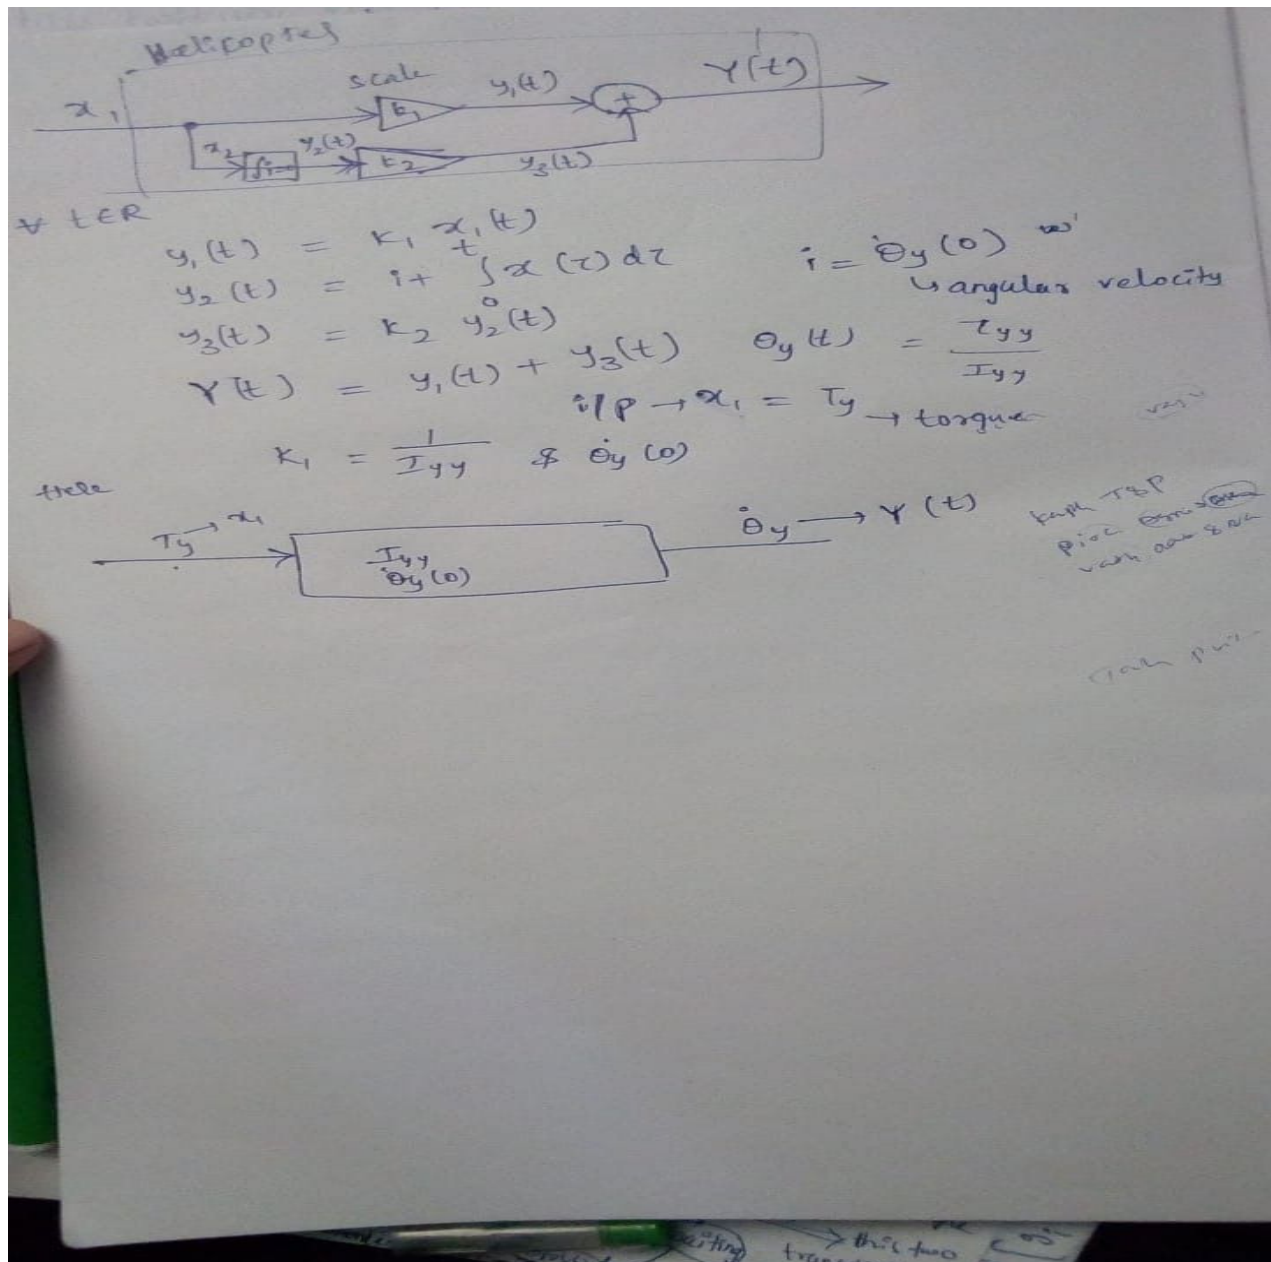 Helicopter
scale
x₁ k₁ y₁(t) + Y(t)
x₂ y₂(t) k₂ y₃(t)
∀ t∈R
y₁(t) = K₁ x₁(t)
y₂(t) = i + ∫₀ᵗ x(τ) dτ i = θ̇y(0)
↳ angular velocity
y₃(t) = K₂ y₂(t)
Y(t) = y₁(t) + y₃(t) θy(t) = τyy / Iyy
i/p → x₁ = Ty → torque
K₁ = 1 / Iyy & θ̇y(0)
Here
Ty → x₁ Iyy θ̇y → Y(t)
θ̇y(0)
this two